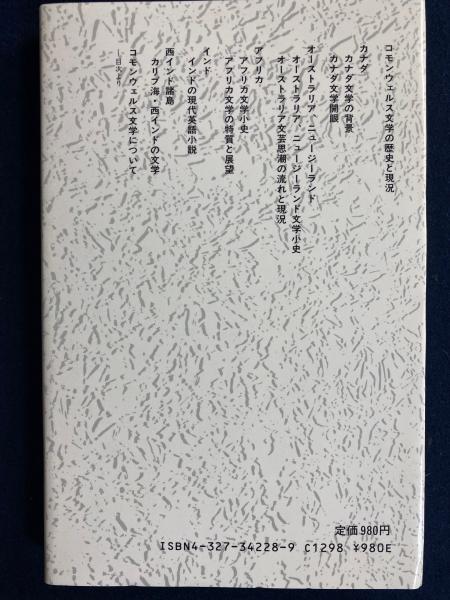 コモンウェルス文学の歴史と現況
カナダ
カナダ文学の背景
カナダ文学開眼
オーストラリア、ニュージーランド
オーストラリア、ニュージーランド文学小史
オーストラリア文芸思潮の流れと現況
アフリカ
アフリカ文学小史
アフリカ文学の特質と展望
インド
インドの現代英語小説
西インド諸島
カリブ海・西インドの文学
コモンウェルス文学について
―目次より
定価980円
ISBN4-327-34228-9 C1298 ¥980E